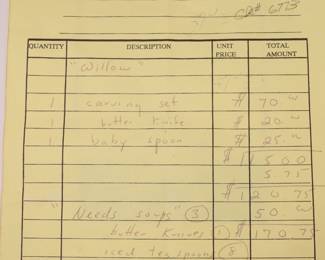 CK# 6723
QUANTITY DESCRIPTION UNIT PRICE TOTAL AMOUNT
"Willow"
1 carving set $ 70.00
1 butter knife $ 20.00
1 baby spoon $ 25.00
$ 115 00
5 75
$ 120 75
"Needs soups" (3) 50.00
butter knives (1) $ 170 75
iced teaspoons (8)